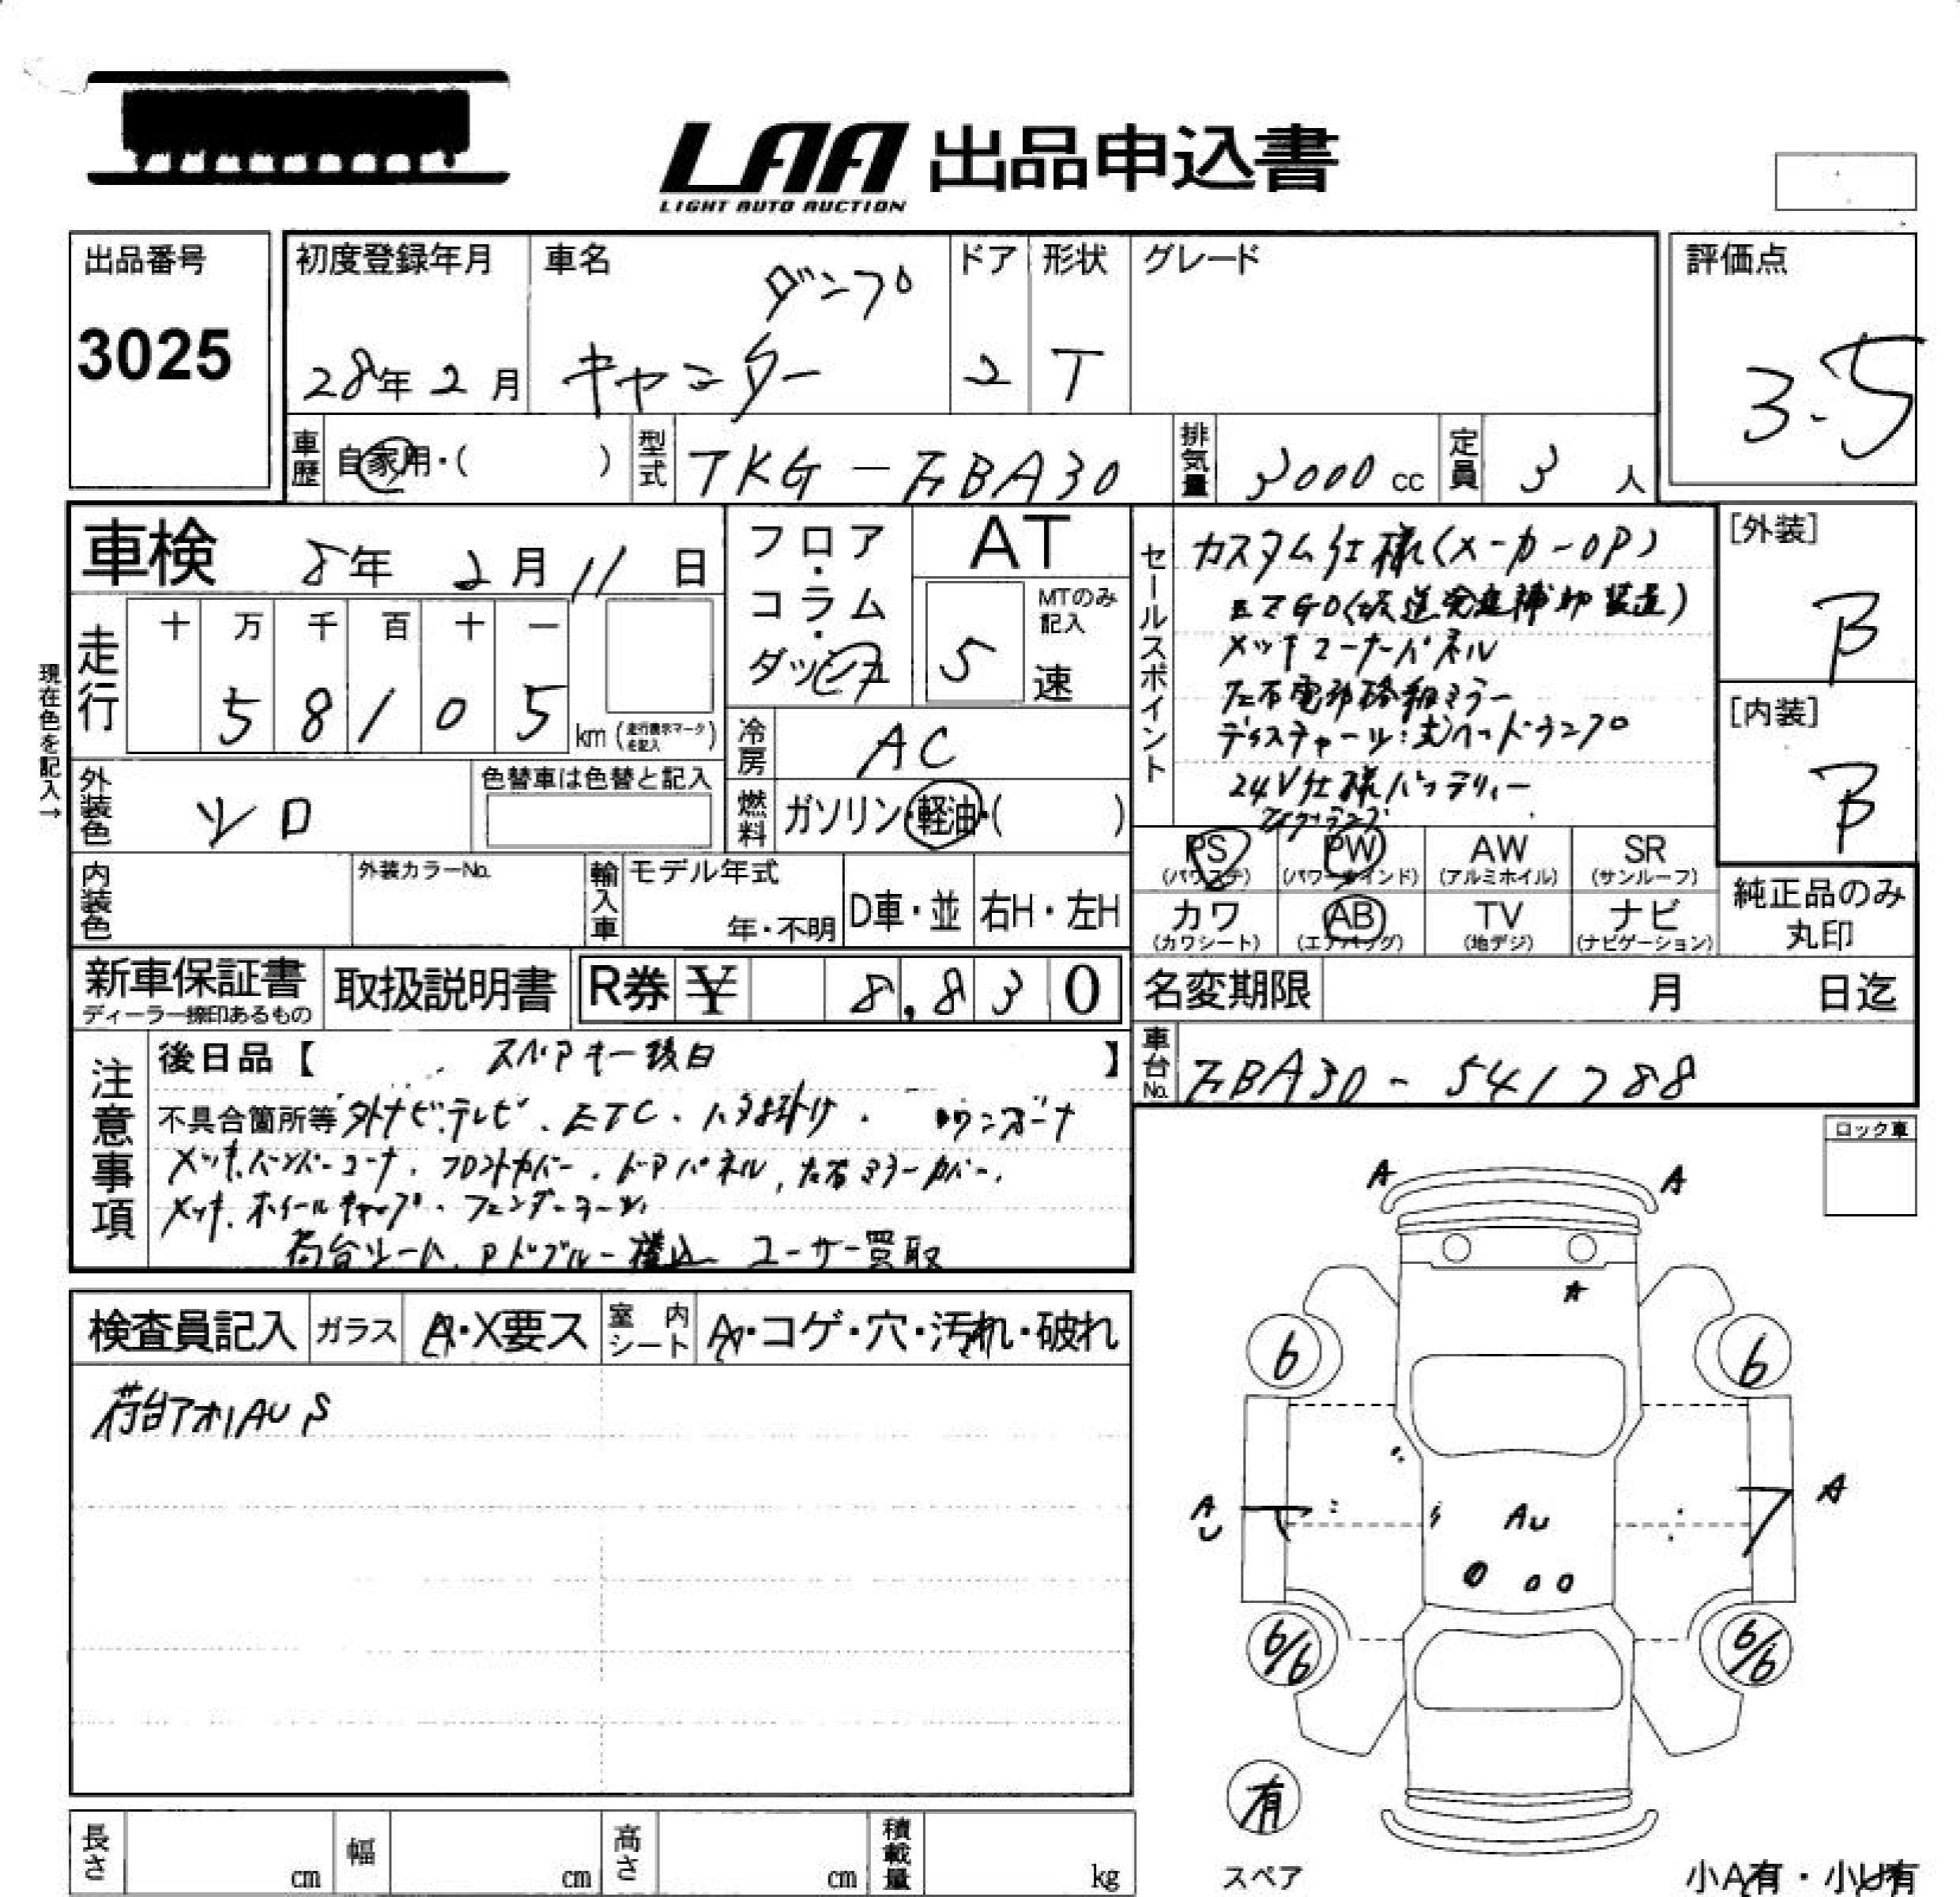 LAA 出品申込書
LIGHT AUTO AUCTION
出品番号
3025
初度登録年月
28年 2月
車名
ダンプ
キャンター
ドア
2
形状
T
グレード
評価点
3.5
車歴
自家用・( )
型式
TKG-FBA30
排気量
3000 cc
定員
3 人
車検 8年 2月 11日
走行
十 万 千 百 十 一
5 8 1 0 5 km (走行表示マークを記入)
現在色を記入→
フロア・コラム・ダッシュ
AT
MTのみ記入
5 速
冷房
AC
燃料
ガソリン・軽油・( )
外装色
シロ
色替車は色替と記入
内装色
外装カラーNo.
輸入車
モデル年式
年・不明
D車・並
右H・左H
セールスポイント
カスタム仕様(メーカーOP)
EZGO(坂道発進補助装置)
メッキコーナーパネル
左右電動格納ミラー
ディスチャージ式ヘッドランプ
24V仕様バッテリー
[外装]
B
[内装]
B
PS
(パワステ)
PW
(パワーウインド)
AW
(アルミホイル)
SR
(サンルーフ)
カワ
(カワシート)
AB
(エアバッグ)
TV
(地デジ)
ナビ
(ナビゲーション)
純正品のみ
丸印
新車保証書
ディーラー捺印あるもの
取扱説明書
R券 ¥ 8,830
名変期限 月 日迄
車台No.
FBA30-541788
注意事項
後日品【 スペアキー後日 】
不具合箇所等 外ナビ.テレビ、ETC、
メッキ.バンパーコーナ、フロントカバー、ドアパネル、左右ミラーカバー、
メッキ.ホイールキャップ、フェンダーミラー
荷台シート、アドブルー積込 ユーザー買取
検査員記入
ガラス
A・X要ス
室内シート
A・コゲ・穴・汚れ・破れ
荷台アオリAUS
ロック車
A
A
A
6
6
A
U
AU
A
6/6
6/6
有
スペア
小A有・小U有
長さ cm
幅 cm
高さ cm
積載量 kg